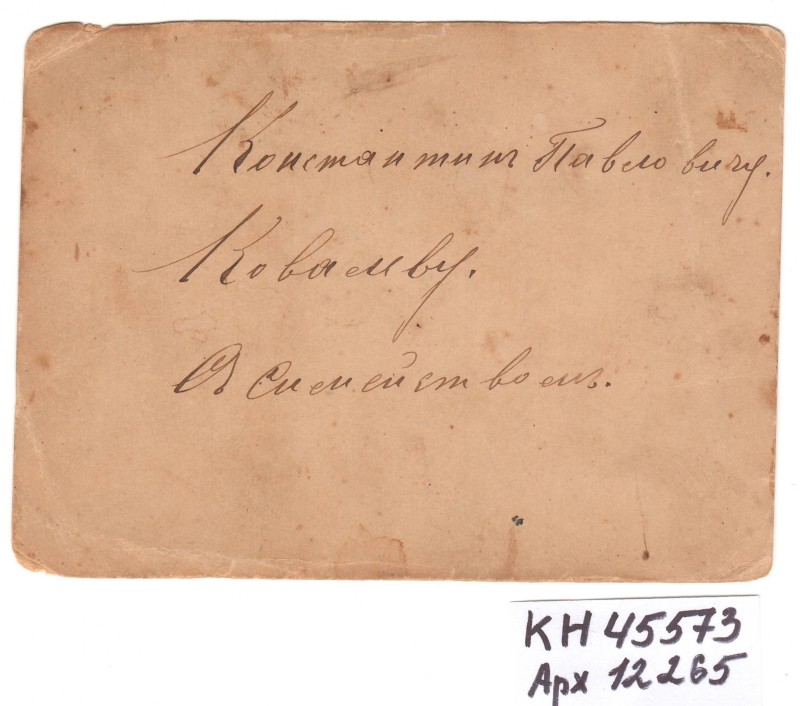 Константину Павловичу.
Ковалеву.
Съ Семействомъ.
КН 45573
Арх 12265